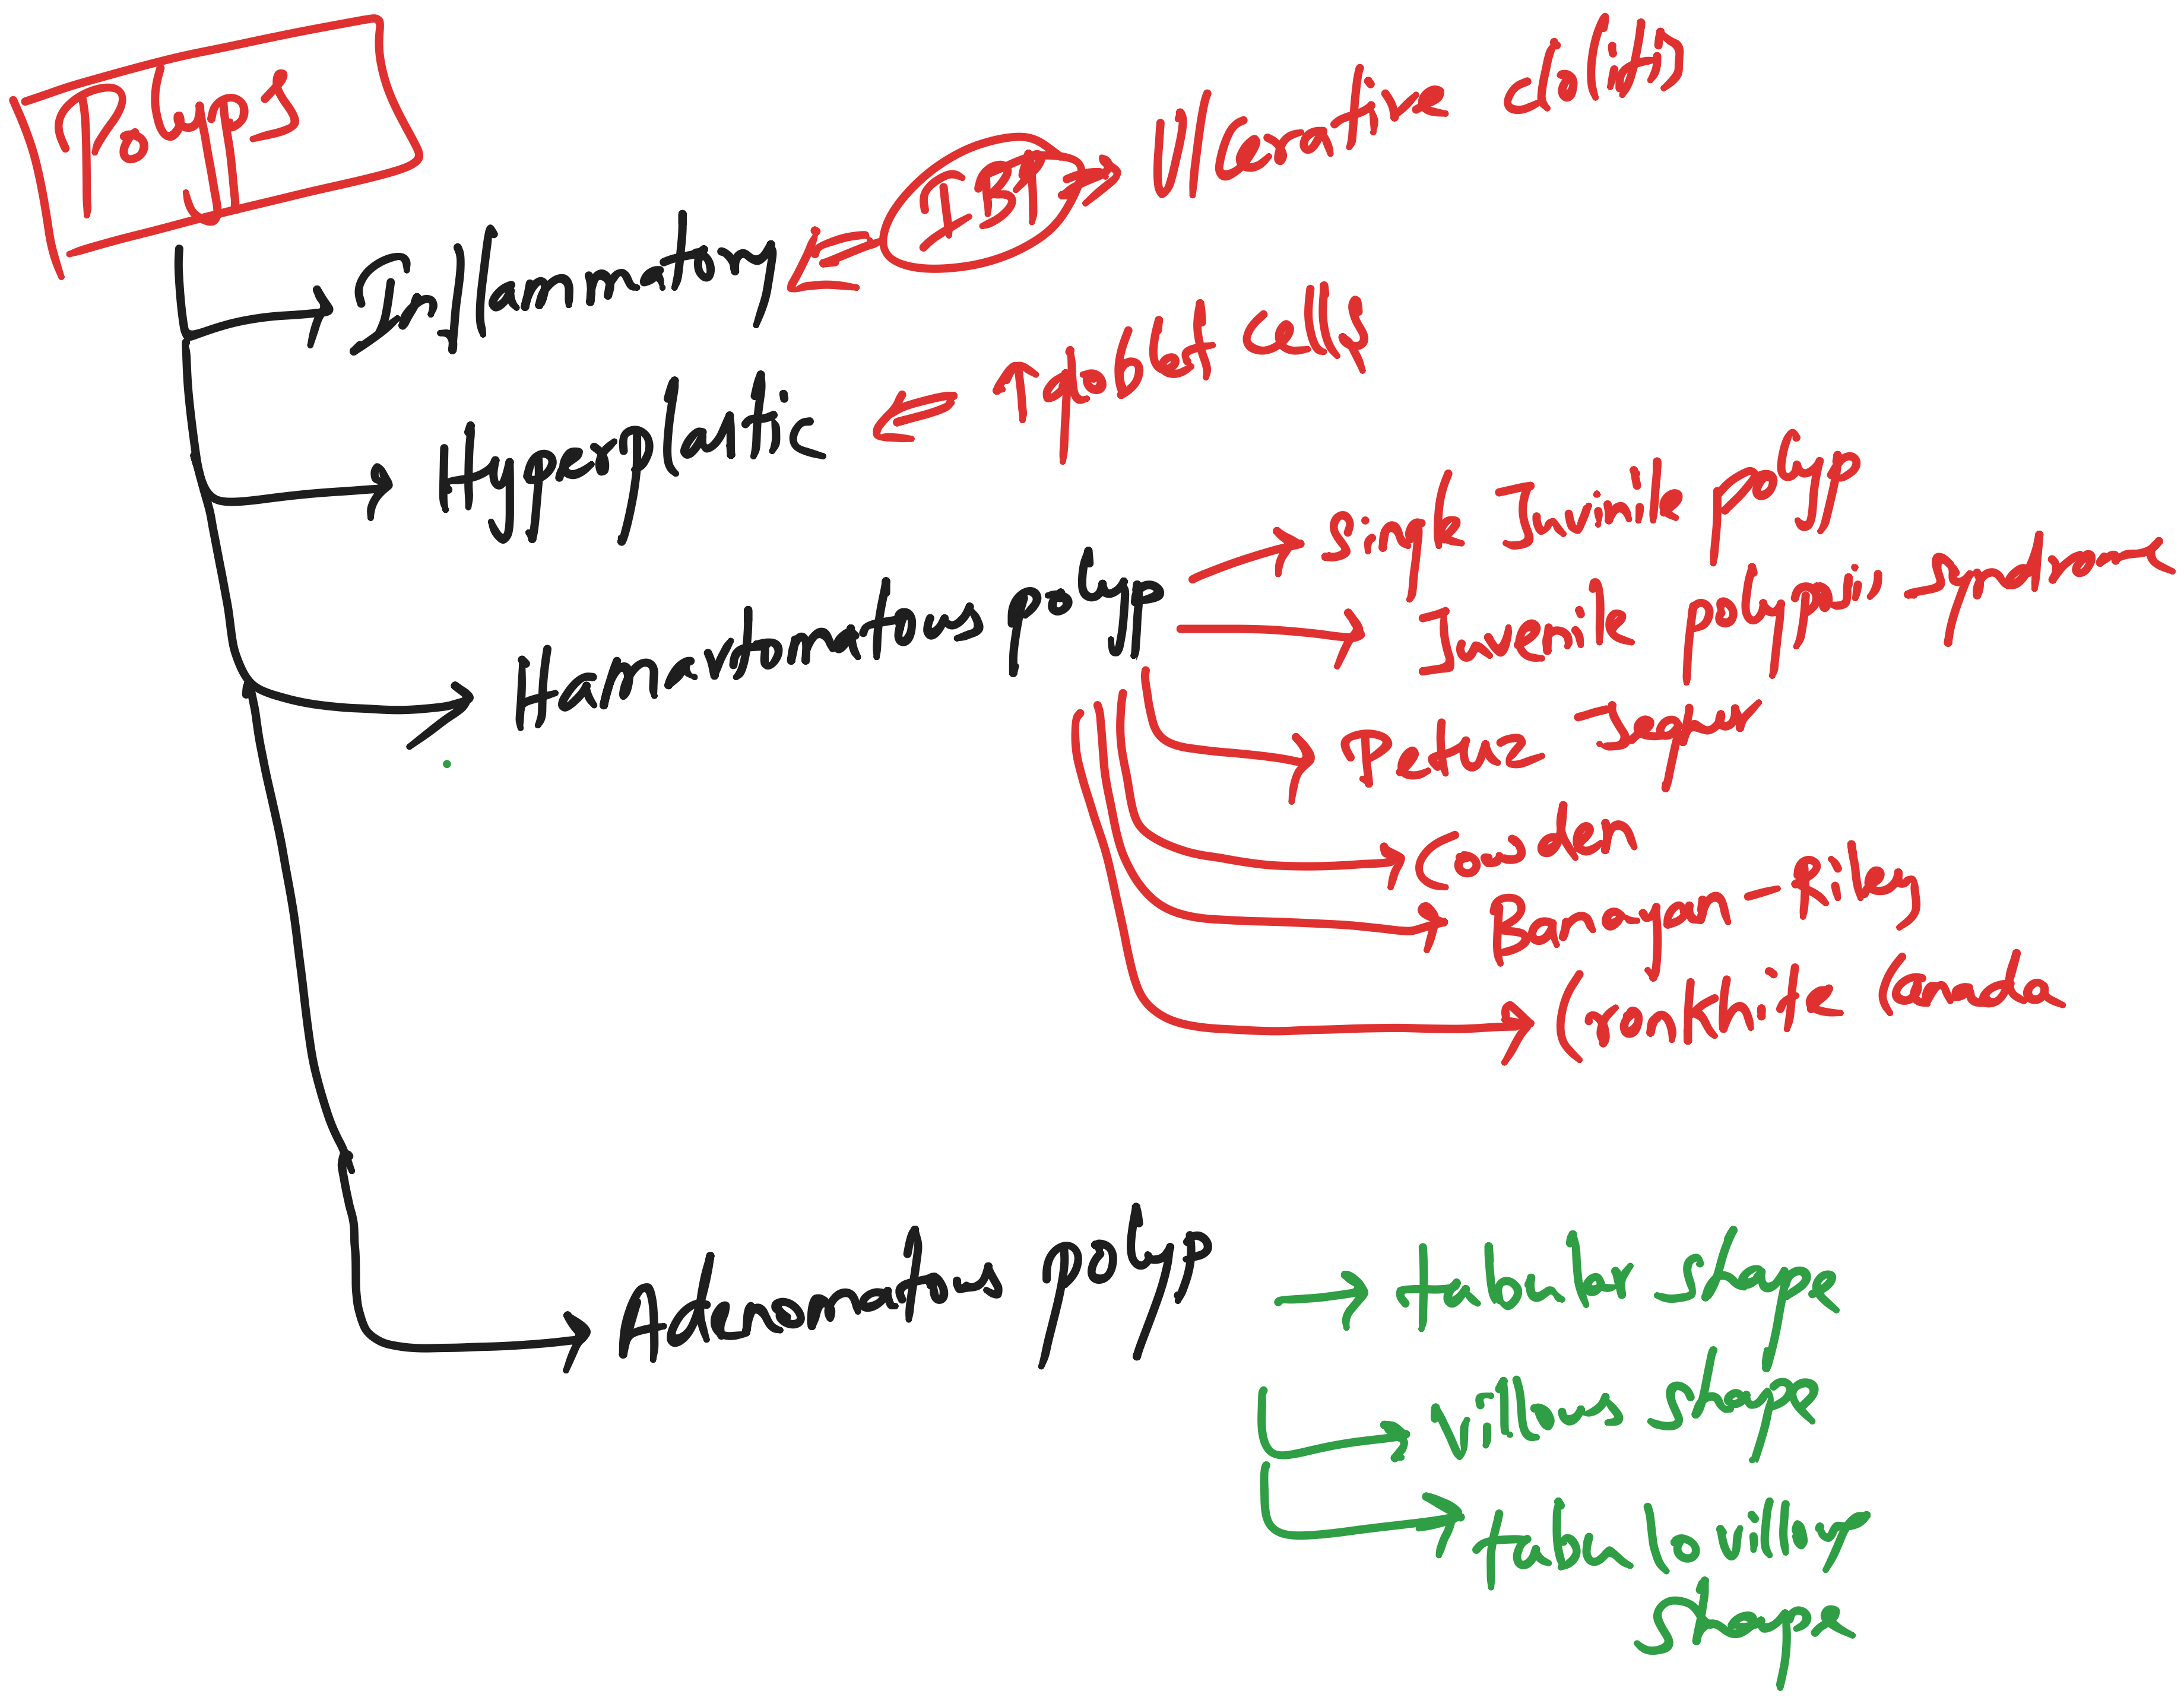 Polyps
Inflammatory ← IBD → Ulcerative colitis
Hyperplastic ⇐ ↑ goblet cells
Hamartomatous polyp → Single Juvinile polyp
→ Juvenile polyposis syndrome
→ Petuz Jeghur
→ Cowden
→ Banayan-Riley
→ Cronkhite Canada
Adenomatous polyp → tabular shape
→ villous shape
→ tabulovillous
shape